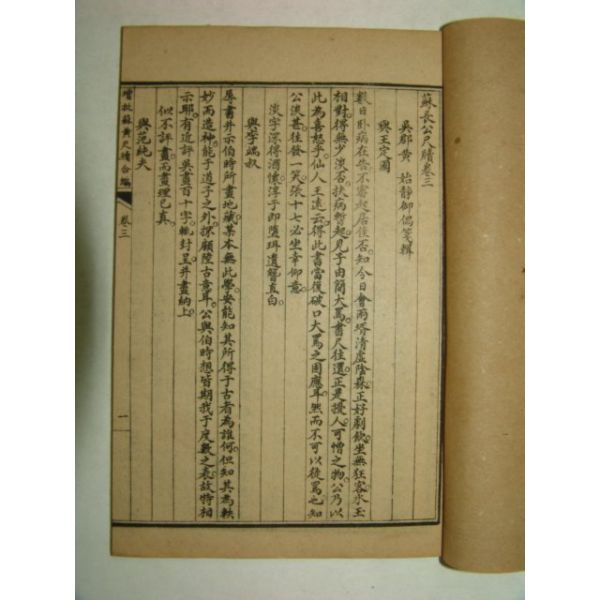 蘇長公尺牘卷三
吳郡黃始靜御偶箋輯
與王定國
數日臥病在告不審起居佳否知今日會兩塔清虛陰森正好劇飲坐無狂客氷玉
相對得無少淡否扶病暫起見子由簡大罵書尺往還正是擾人可憎之物公乃以
此為喜怒乎仙人王遠云得此書當復破口大罵之固應耳然而不可以徒罵也知
公澹甚往發一笑張十七必坐幸仰意
淡字深得酒懷淳于即墮珥遺簪直白
與李端叔
辱書并示伯時所畫地藏某本無此學安能知其所得于古者為誰何但知其為軼
妙而造神能于道子之外探顧陸古意耳公與伯時想皆期我于度數之表故特相
示耶有近評吳畫百十字輒封呈并畫納上
似不評畫而畫理已真
與范純夫
增批蘇黃尺牘合編
卷三
一